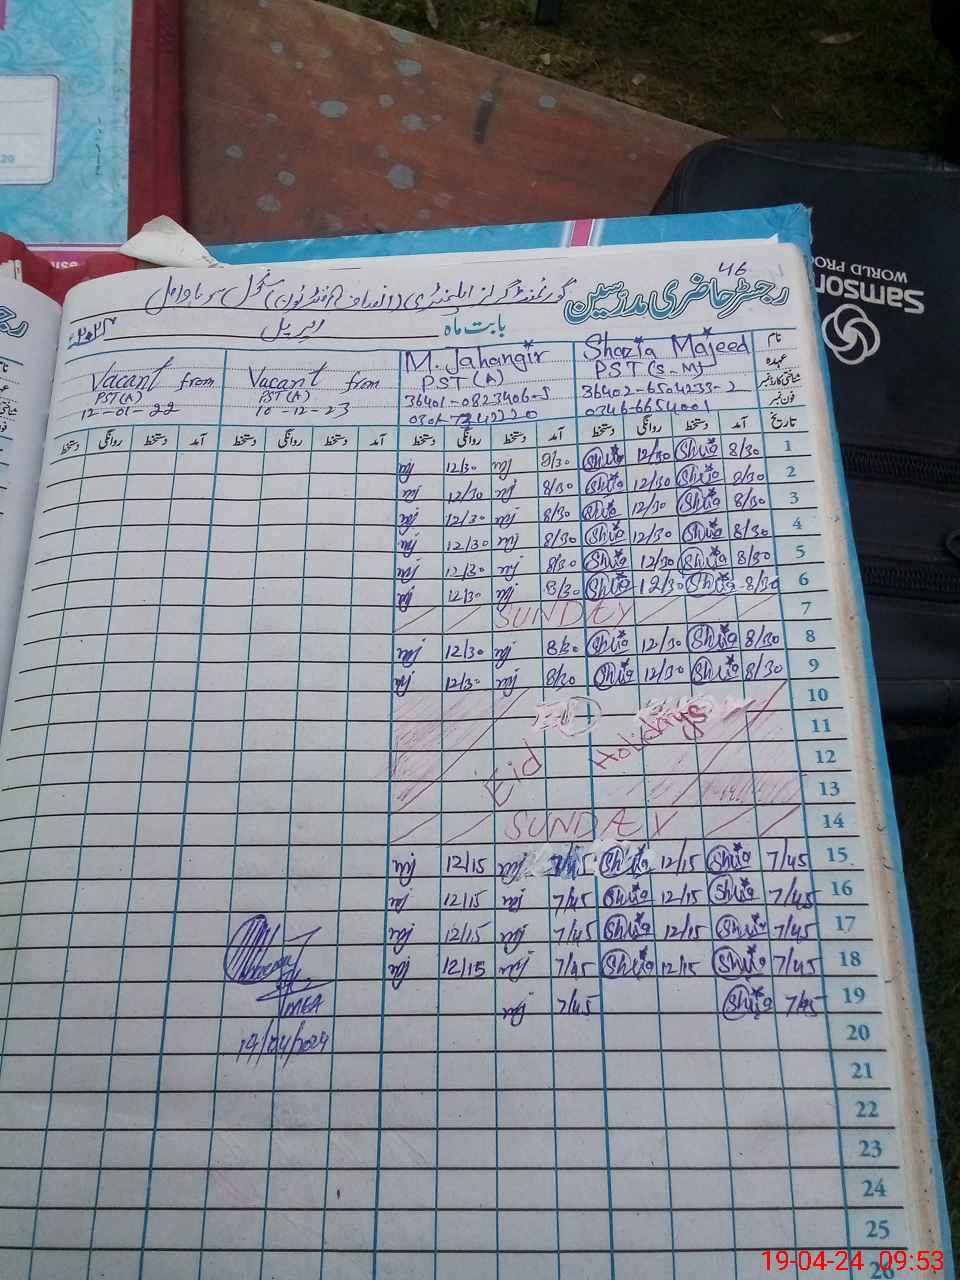 46
رجسٹر حاضری مدرسین
گورنمنٹ گرلز ایلیمنٹری (انصاف آفٹرنون) سکول
بابت ماہ اپریل ۲۰۲۴ء
نام Shazia Majeed M. Jahangir Vacant from Vacant from
عہدہ PST (S-M) PST (A) PST (A) PST (A)
شناختی کارڈ نمبر 36402-6504233-2 36401-0823406-5 10-12-23 12-01-22
فون نمبر 0346-6654001
تاریخ آمد دستخط روانگی دستخط آمد دستخط روانگی دستخط آمد دستخط روانگی دستخط آمد دستخط روانگی دستخط
1 8/30 Shzia 12/30 Shzia 8/30 12/30
2 8/30 Shzia 12/30 Shzia 8/30 12/30
3 8/30 Shzia 12/30 Shzia 8/30 12/30
4 8/30 Shzia 12/30 Shzia 8/30 12/30
5 8/30 Shzia 12/30 Shzia 8/30 12/30
6 8/30 Shzia 12/30 Shzia 8/30 12/30
7 SUNDAY
8 8/30 Shzia 12/30 Shzia 8/30 12/30
9 8/30 Shzia 12/30 Shzia 8/30 12/30
10
11 Eid Holidays
12
13
14 SUNDAY
15 7/45 Shzia 12/15 Shzia 7/45 12/15
16 7/45 Shzia 12/15 Shzia 7/45 12/15
17 7/45 Shzia 12/15 Shzia 7/45 12/15
18 7/45 Shzia 12/15 Shzia 7/45 12/15
19 7/45 Shzia 7/45
MEA
19/04/2024
20
21
22
23
24
25
26
Samsonite
WORLD PRO
19-04-24 09:53